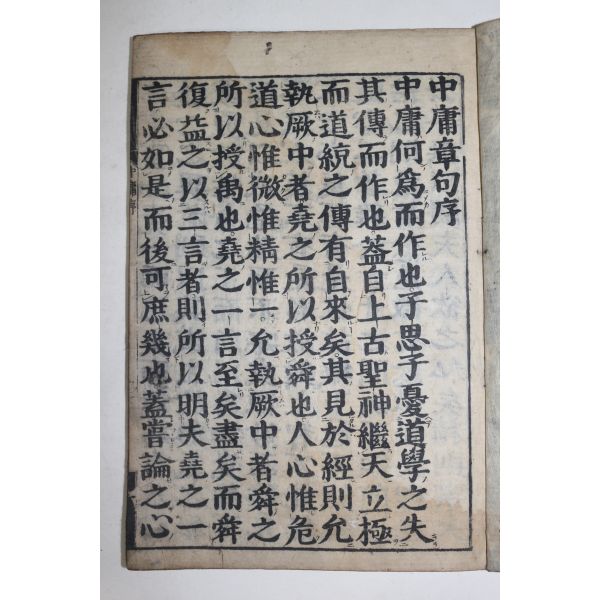 中庸章句序
中庸何爲而作也子思子憂道學之失
其傳而作也蓋自上古聖神繼天立極
而道統之傳有自來矣其見於經則允
執厥中者堯之所以授舜也人心惟危
道心惟微惟精惟一允執厥中者舜之
所以授禹也堯之一言至矣盡矣而舜
復益之以三言者則所以明夫堯之一
言必如是而後可庶幾也蓋嘗論之心
中庸序